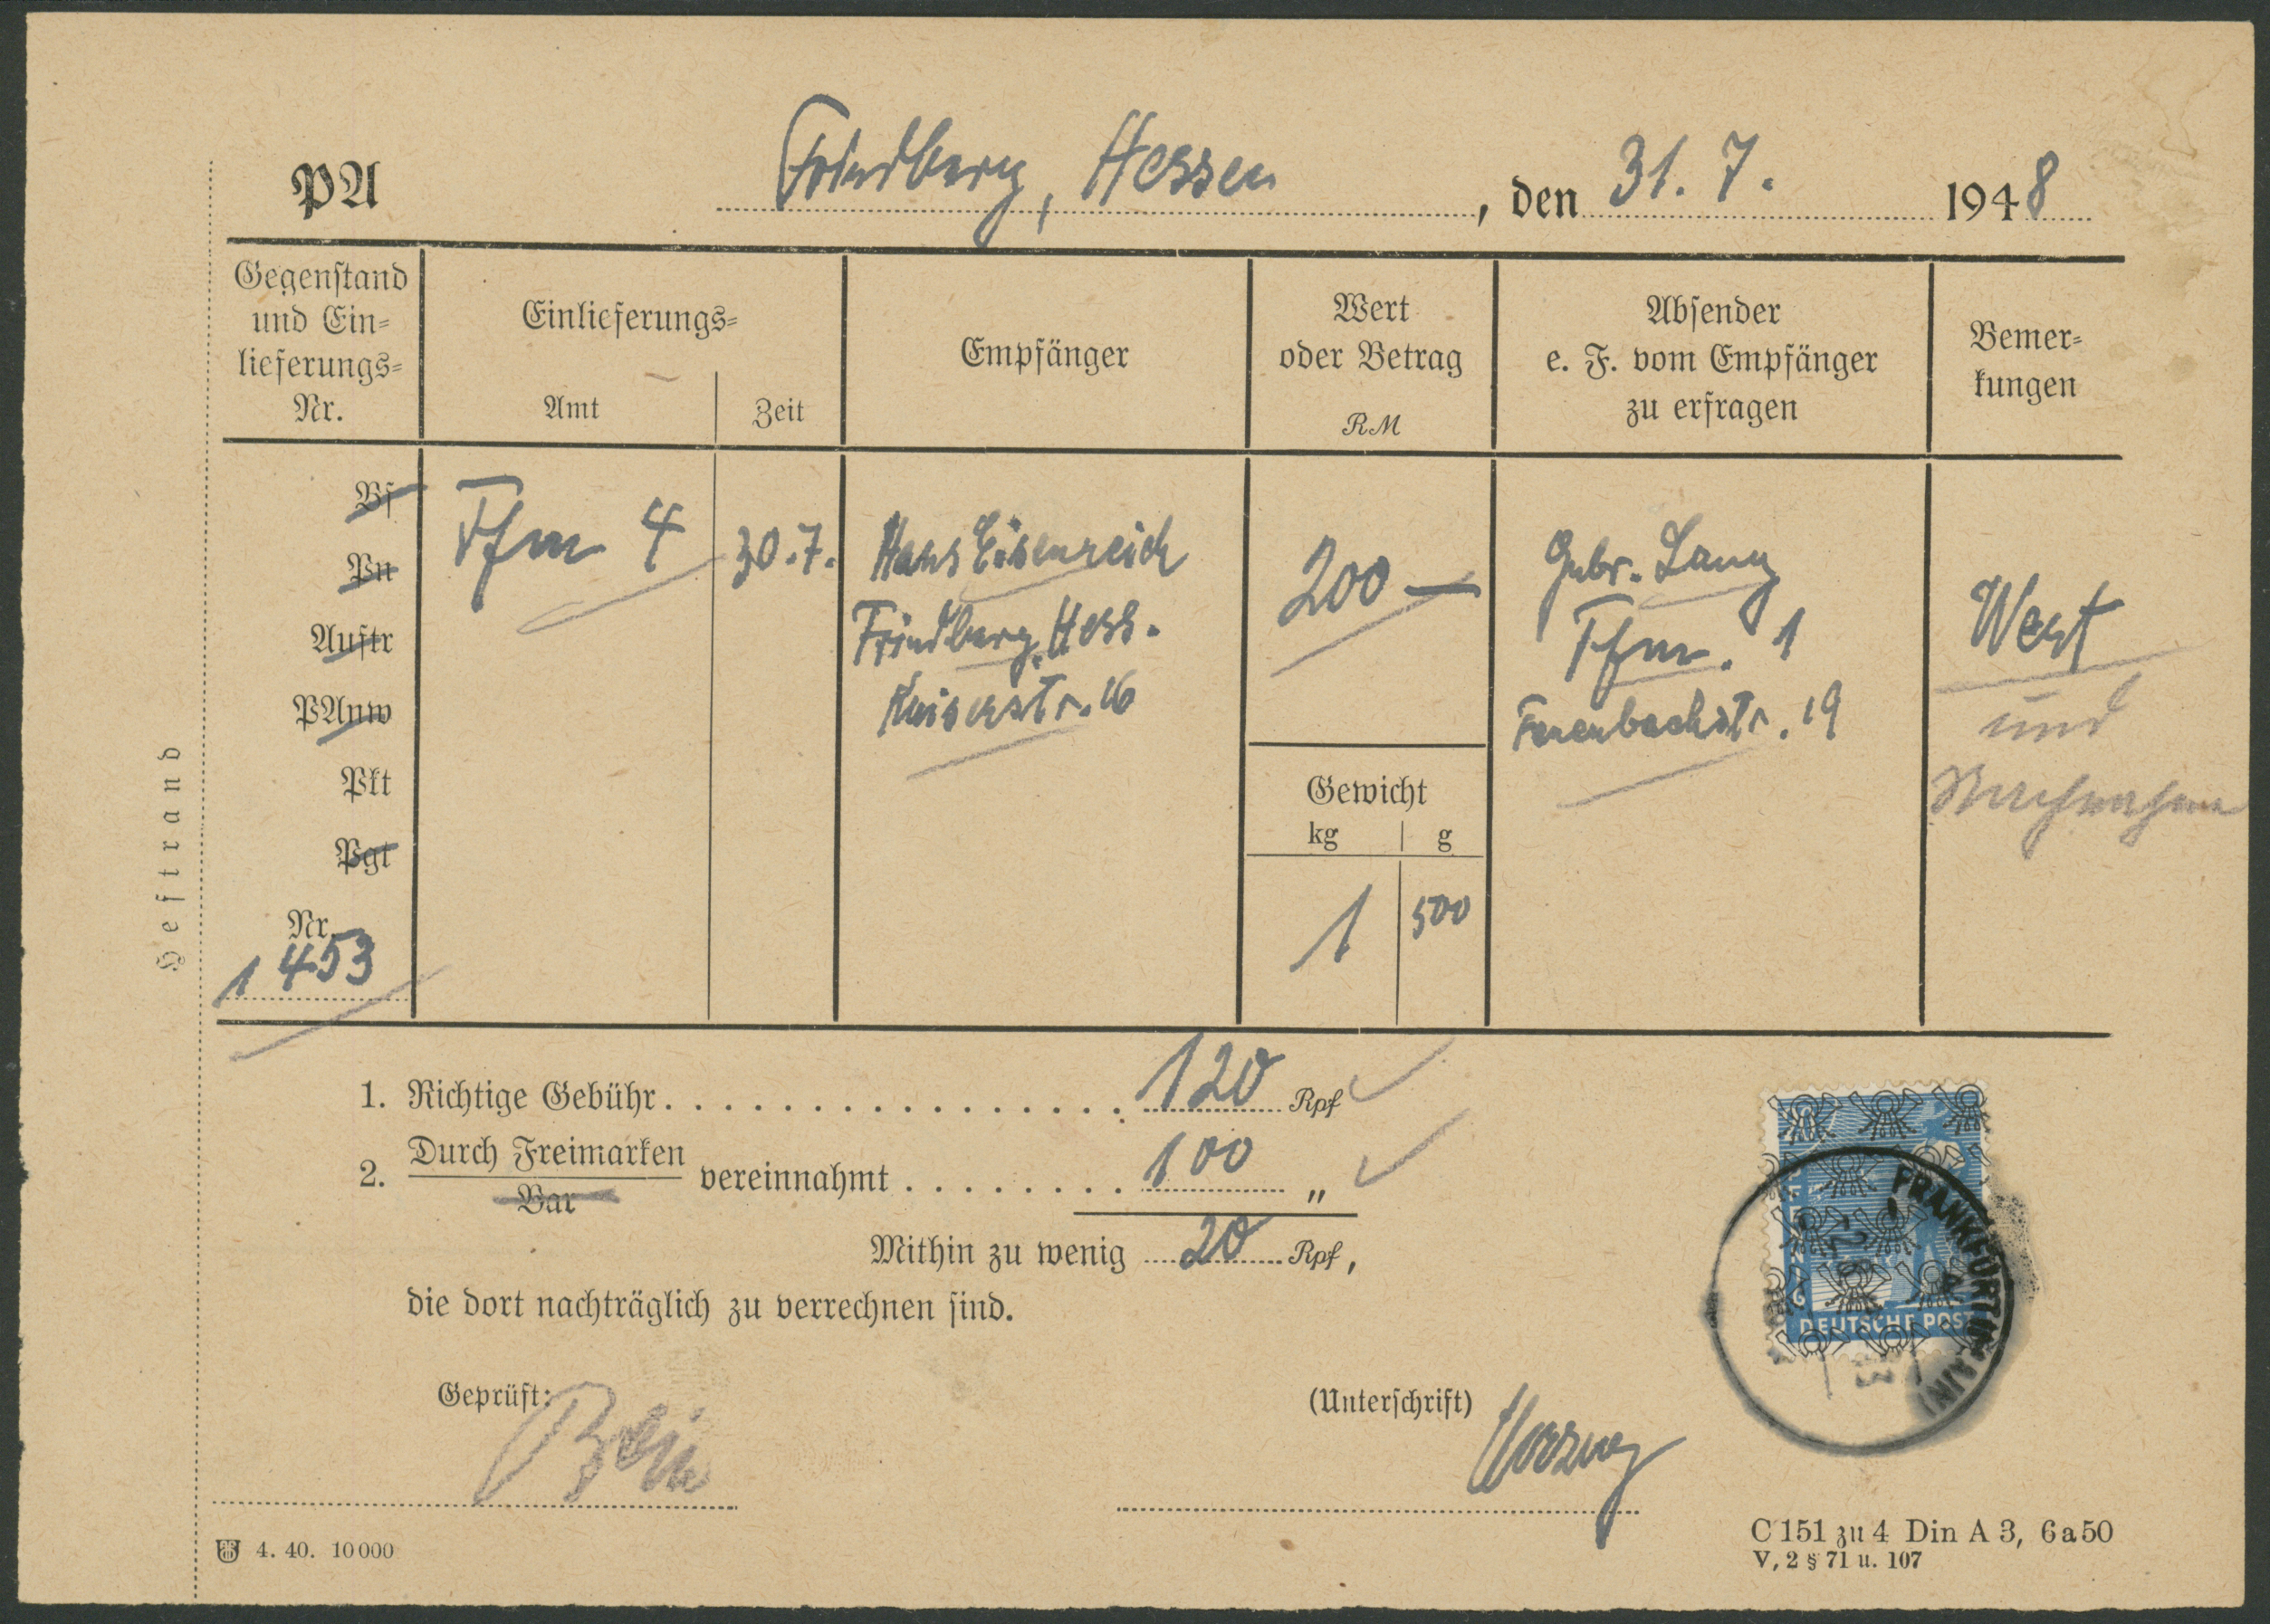 PA
Friedberg, Hessen, den 31. 7. 1948
Gegenstand und Ein=lieferungs=Nr.
Einlieferungs=
Amt
Zeit
Empfänger
Wert oder Betrag
RM
Absender
e. F. vom Empfänger
zu erfragen
Bemer=
kungen
Bf
Pn
Auftr
PAnw
Pkt
Pgt
Nr.
1 453
Ffm 4
30.7.
Hans Eisenreich
Friedberg, Hess.
Kaiserstr. 16
200 —
Gewicht
kg
g
1
500
Gebr. Lang
Ffm. 1
Feuerbachstr. 19
Wert
und
Nachnahme
Heftrand
1. Richtige Gebühr ................ 120 Rpf
2. Durch Freimarken
Bar
vereinnahmt ........ 100 "
Mithin zu wenig 20 Rpf,
die dort nachträglich zu verrechnen sind.
Geprüft:
(Unterschrift)
DEUTSCHE POST
FRANKFURT (MAIN)
4. 40. 10000
C 151 zu 4 Din A 3, 6a50
V, 2 § 71 u. 107